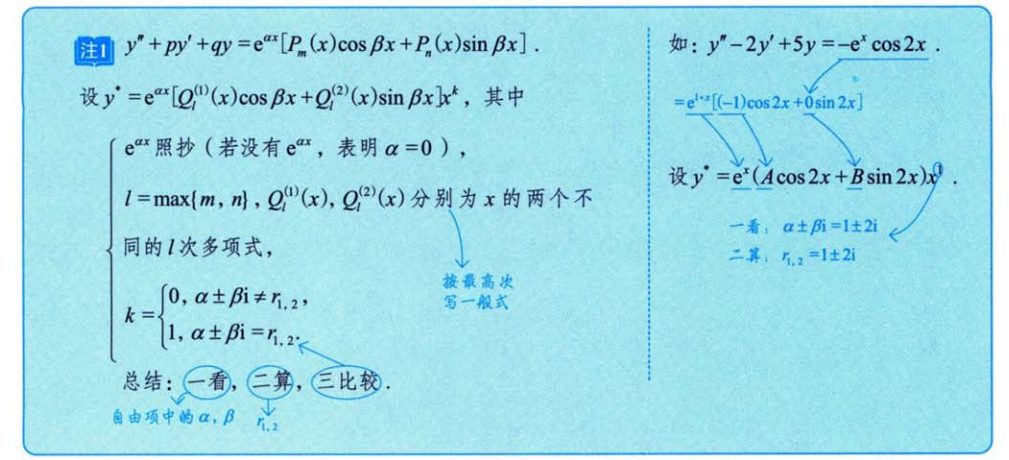 注1 y″+py′+qy=e^{αx}[P_m(x)cos βx+P_n(x)sin βx].
设y*=e^{αx}[Q_l^{(1)}(x)cos βx+Q_l^{(2)}(x)sin βx]x^k，其中
e^{αx}照抄（若没有e^{αx}，表明α=0），
l=max{m, n}, Q_l^{(1)}(x), Q_l^{(2)}(x)分别为x的两个不
同的l次多项式，
按最高次
写一般式
k={0, α±βi≠r_{1,2},
1, α±βi=r_{1,2}.
总结：一看，二算，三比较.
自由项中的α, β
r_{1,2}
如：y″−2y′+5y=−e^x cos 2x.
=e^{1·x}[(−1)cos 2x+0sin 2x]
设y*=e^x(Acos 2x+Bsin 2x)x^1.
一看：α±βi=1±2i
二算：r_{1,2}=1±2i